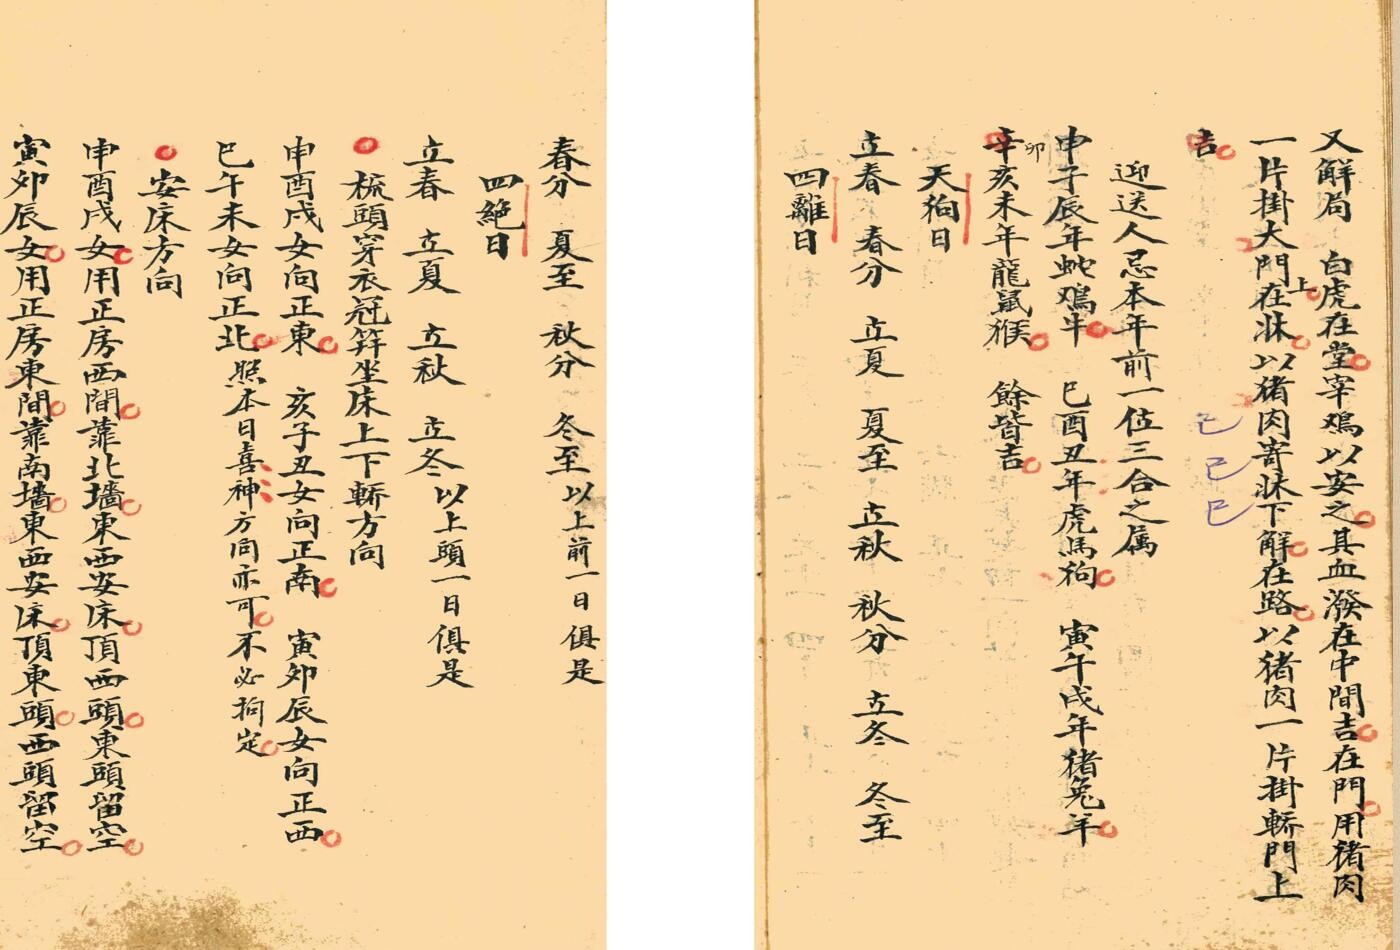 又解局　白虎在堂宰鳮以安之其血潑在中間吉在門用猪肉
一片掛大門上在牀以猪肉寄牀下解在路以猪肉一片掛轎門上
吉
己
已
巳
迎送人忌本年前一位三合之属
申子辰年蛇鳮牛　巳酉丑年虎馬狗　寅午戌年猪兔羊
辛亥未年龍鼠猴　餘皆吉
卯
天狗日
立春　春分　立夏　夏至　立秋　秋分　立冬　冬至
四離日
春分　夏至　秋分　冬至以上前一日俱是
四絕日
立春　立夏　立秋　立冬以上頭一日俱是
梳頭穿衣冠笄坐床上下轎方向
申酉戌女向正東　亥子丑女向正南　寅卯辰女向正西
巳午未女向正北照本日喜神方向亦可不必拘定
安床方向
申酉戌女用正房西間靠北墻東西安床頂西頭東頭留空
寅卯辰女用正房東間靠南墻東西安床頂東頭西頭留空